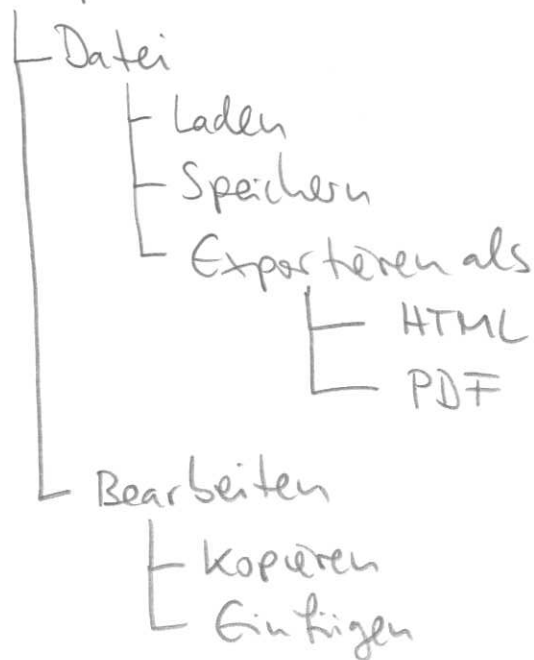 Datei
Laden
Speichern
Exportieren als
HTML
PDF
Bearbeiten
Kopieren
Einfügen